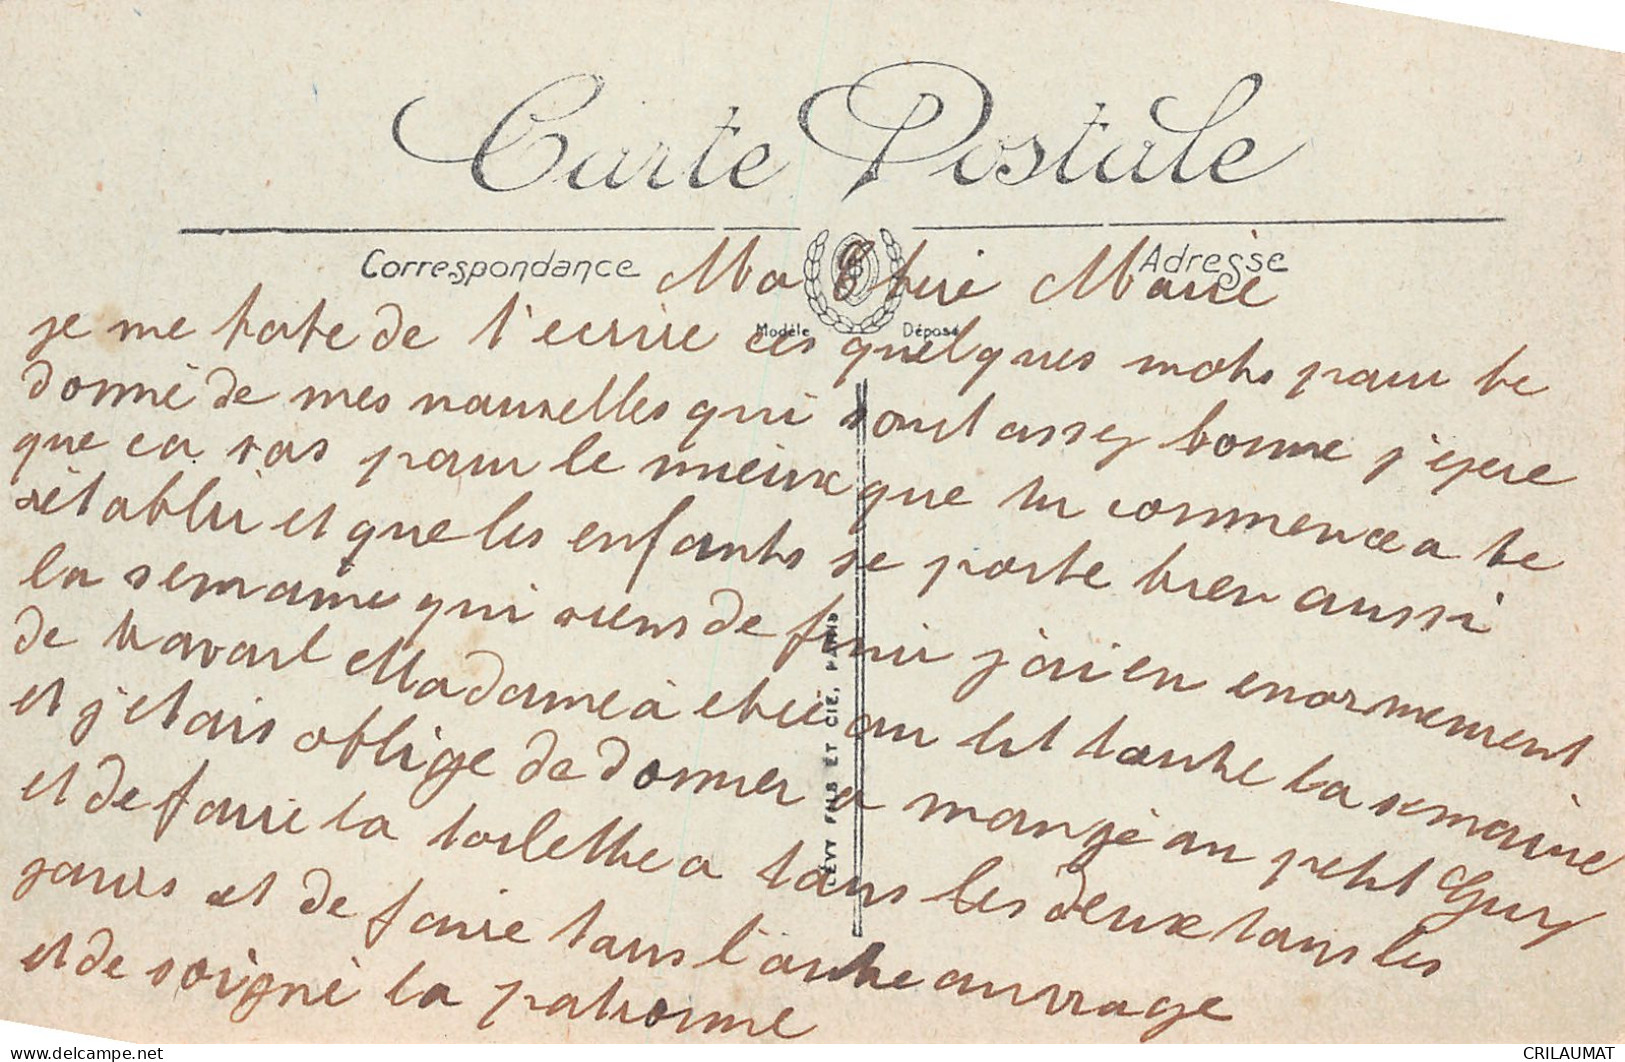 Carte Postale
Correspondance
Adresse
Modèle Déposé
LÉVY FILS ET CIE, PARIS
Ma Chere Marie
je me hate de t'ecrire ces quelques mots pour te
donné de mes nouvelles qui sont assez bonne j'espere
que ca vas pour le mieux que tu commence a te
rétabli et que les enfants se porte bien aussi
la semaine qui viens de fini j'ai en enormement
de travail Madame à etée au lit toute la semaine
et j'etais oblige de donner a mangé au petit Guy
et de faire la toilette a tous les deux tous les
jours et de faire tous l'autre ouvrage
et de soigné la patronne
CRILAUMAT